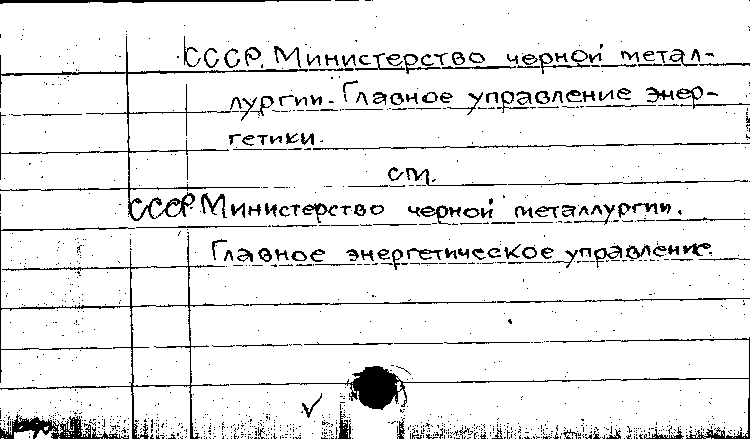 СССР. Министерство черной метал-
лургии. Главное управление энер-
гетики.
см.
СССР. Министерство черной металлургии.
Главное энергетическое управление.